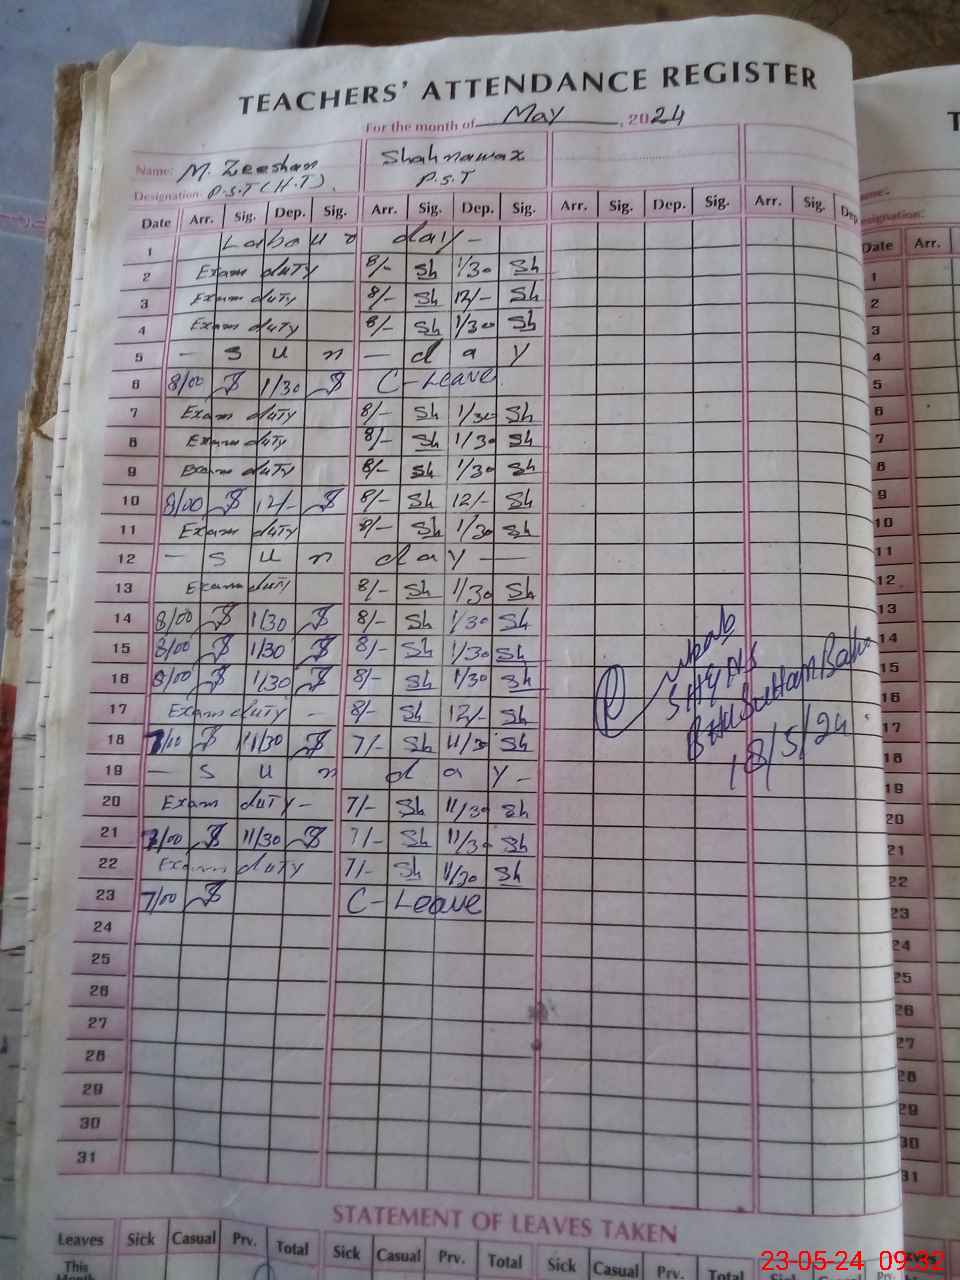 TEACHERS' ATTENDANCE REGISTER
For the month of May, 2024
Name: M. Zeeshan Shahnawaz
Designation: P.S.T (H.T). P.S.T
Date Arr. Sig. Dep. Sig. Arr. Sig. Dep. Sig. Arr. Sig. Dep. Sig. Arr. Sig. Dep
1 Labour day -
2 Exam duty 8/- Sh 1/30 Sh
3 Exam duty 8/- Sh 12/- Sh
4 Exam duty 8/- Sh 1/30 Sh
5 - S u n - d a y
6 8/00 1/30 C-Leave
7 Exam duty 8/- Sh 1/30 Sh
8 Exam duty 8/- Sh 1/30 Sh
9 Exam duty 8/- Sh 1/30 Sh
10 8/00 12/- 8/- Sh 12/- Sh
11 Exam duty 8/- Sh 1/30 Sh
12 - S u n d a y -
13 Exam duty 8/- Sh 1/30 Sh
14 8/00 1/30 8/- Sh 1/30 Sh
15 8/00 1/30 8/- Sh 1/30 Sh
16 8/00 1/30 8/- Sh 1/30 Sh
17 Exam duty - 8/- Sh 12/- Sh
18 11/30 7/- Sh 11/30 Sh
18/5/24
19 - S u n d a y -
20 Exam duty - 7/- Sh 11/30 Sh
21 7/00 11/30 7/- Sh 11/30 Sh
22 Exam duty 7/- Sh 11/30 Sh
23 7/00 C-Leave
24
25
26
27
28
29
30
31
STATEMENT OF LEAVES TAKEN
Leaves Sick Casual Prv. Total Sick Casual Prv. Total Sick Casual Prv. Total Sick
This
Month
T
Name:
Designation:
Date Arr.
1
2
3
4
5
6
7
8
9
10
11
12
13
14
15
16
17
18
19
20
21
22
23
24
25
26
27
28
29
30
31
23-05-24 09:32